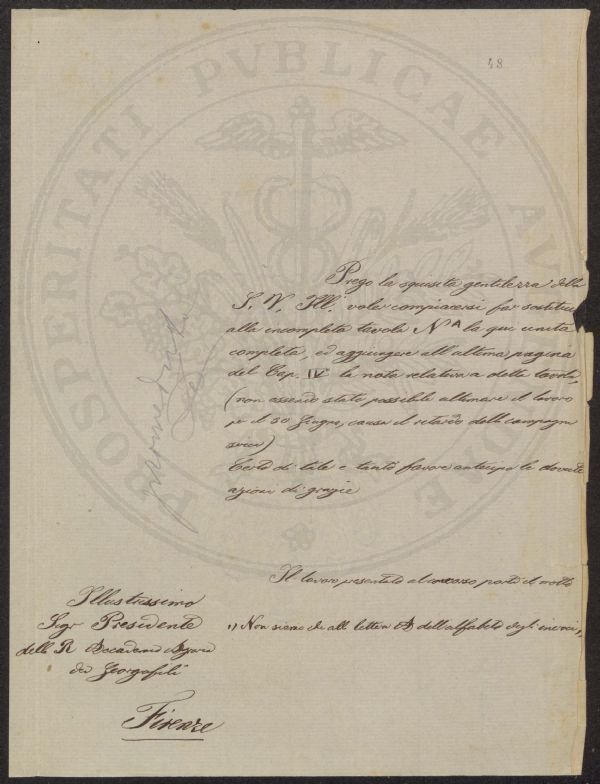 48
PROSPERITATI PVBLICAE AVGENDAE
Prego la squisita gentilezza della
S. V. Ill. voler compiacersi far sostitui
alla incompleta tavola Nª la qui unita
completa, ed aggiungere all'ultima pagina
del Cap. IV la nota relativa a detta tavola,
(non essendo stato possibile ultimare il lavoro
pe il 30 Giugno, causa il ritardo della campagna
)
Certo di tale e tanto favore anticipo le dovute
azioni di grazie
Il lavoro presentato al concorso porta il motto
"Non siamo che alla lettera A dell'alfabeto degli incroci"
Illustrissimo
Sigr Presidente
della R Accademia Agraria
dei Georgofili
Firenze